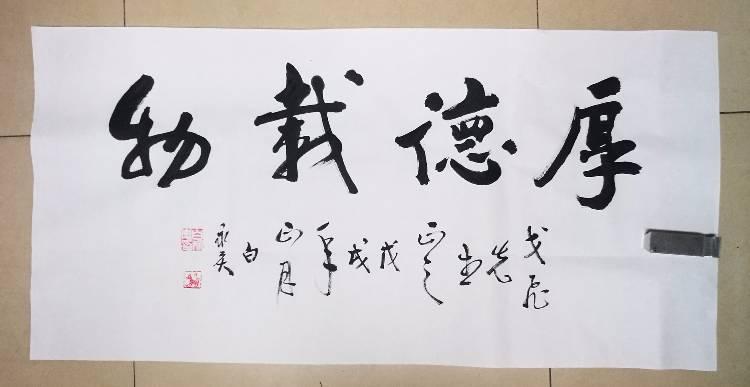 厚德載物
戈飛先生正之戊戌年正月白